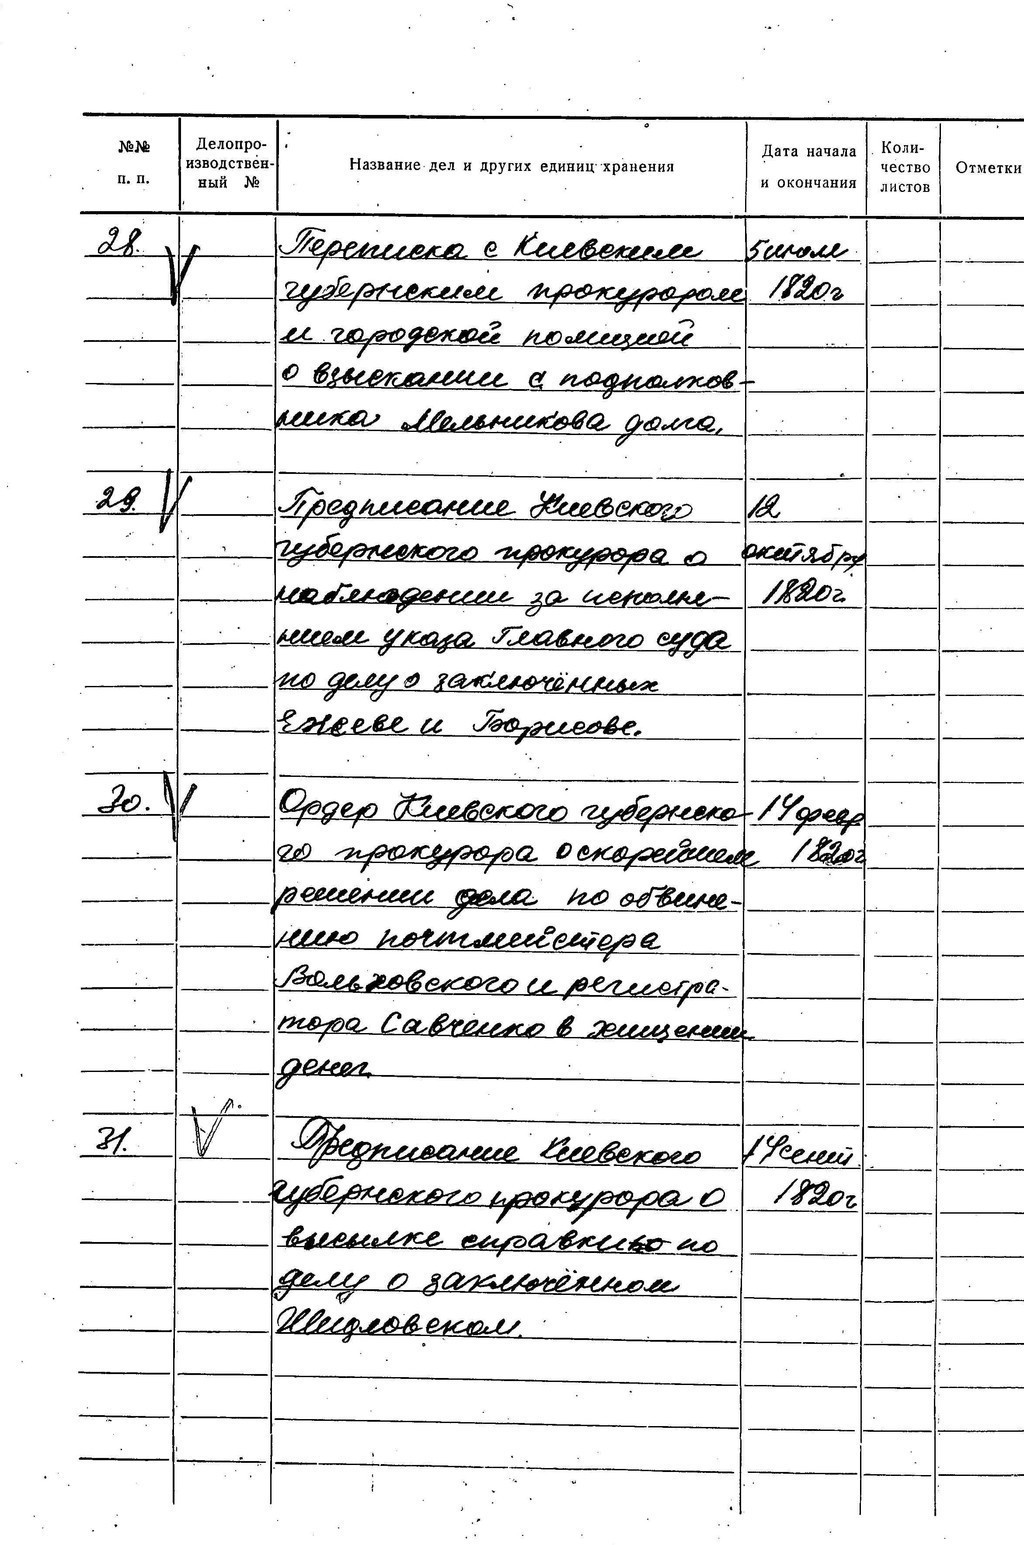 №№ п. п.
Делопро-
изводствен-
ный №
Название дел и других единиц хранения
Дата начала
и окончания
Коли-
чество
листов
Отметки
28. Переписка с Киевским 5 июля
губернским прокурором 1820г
и городской полицией
о взыскании с подполков-
ника Мельникова долга.
29. Предписание Киевского 12
губернского прокурора о октября
наблюдении за исполне-
1820г.
нием указа Главного суда
по делу о заключённых
Ежеве и Борисове.
30. Ордер Киевского губернско- 14 февр
го прокурора о скорейшем 1820г
решении дела по обвине-
нию почтмейстера
Вольховского и регистра-
тора Савченко в хищении
денег.
31. Предписание Киевского 14 сент.
губернского прокурора о 1820г
высылке справки по
делу о заключённом
Шидловском.